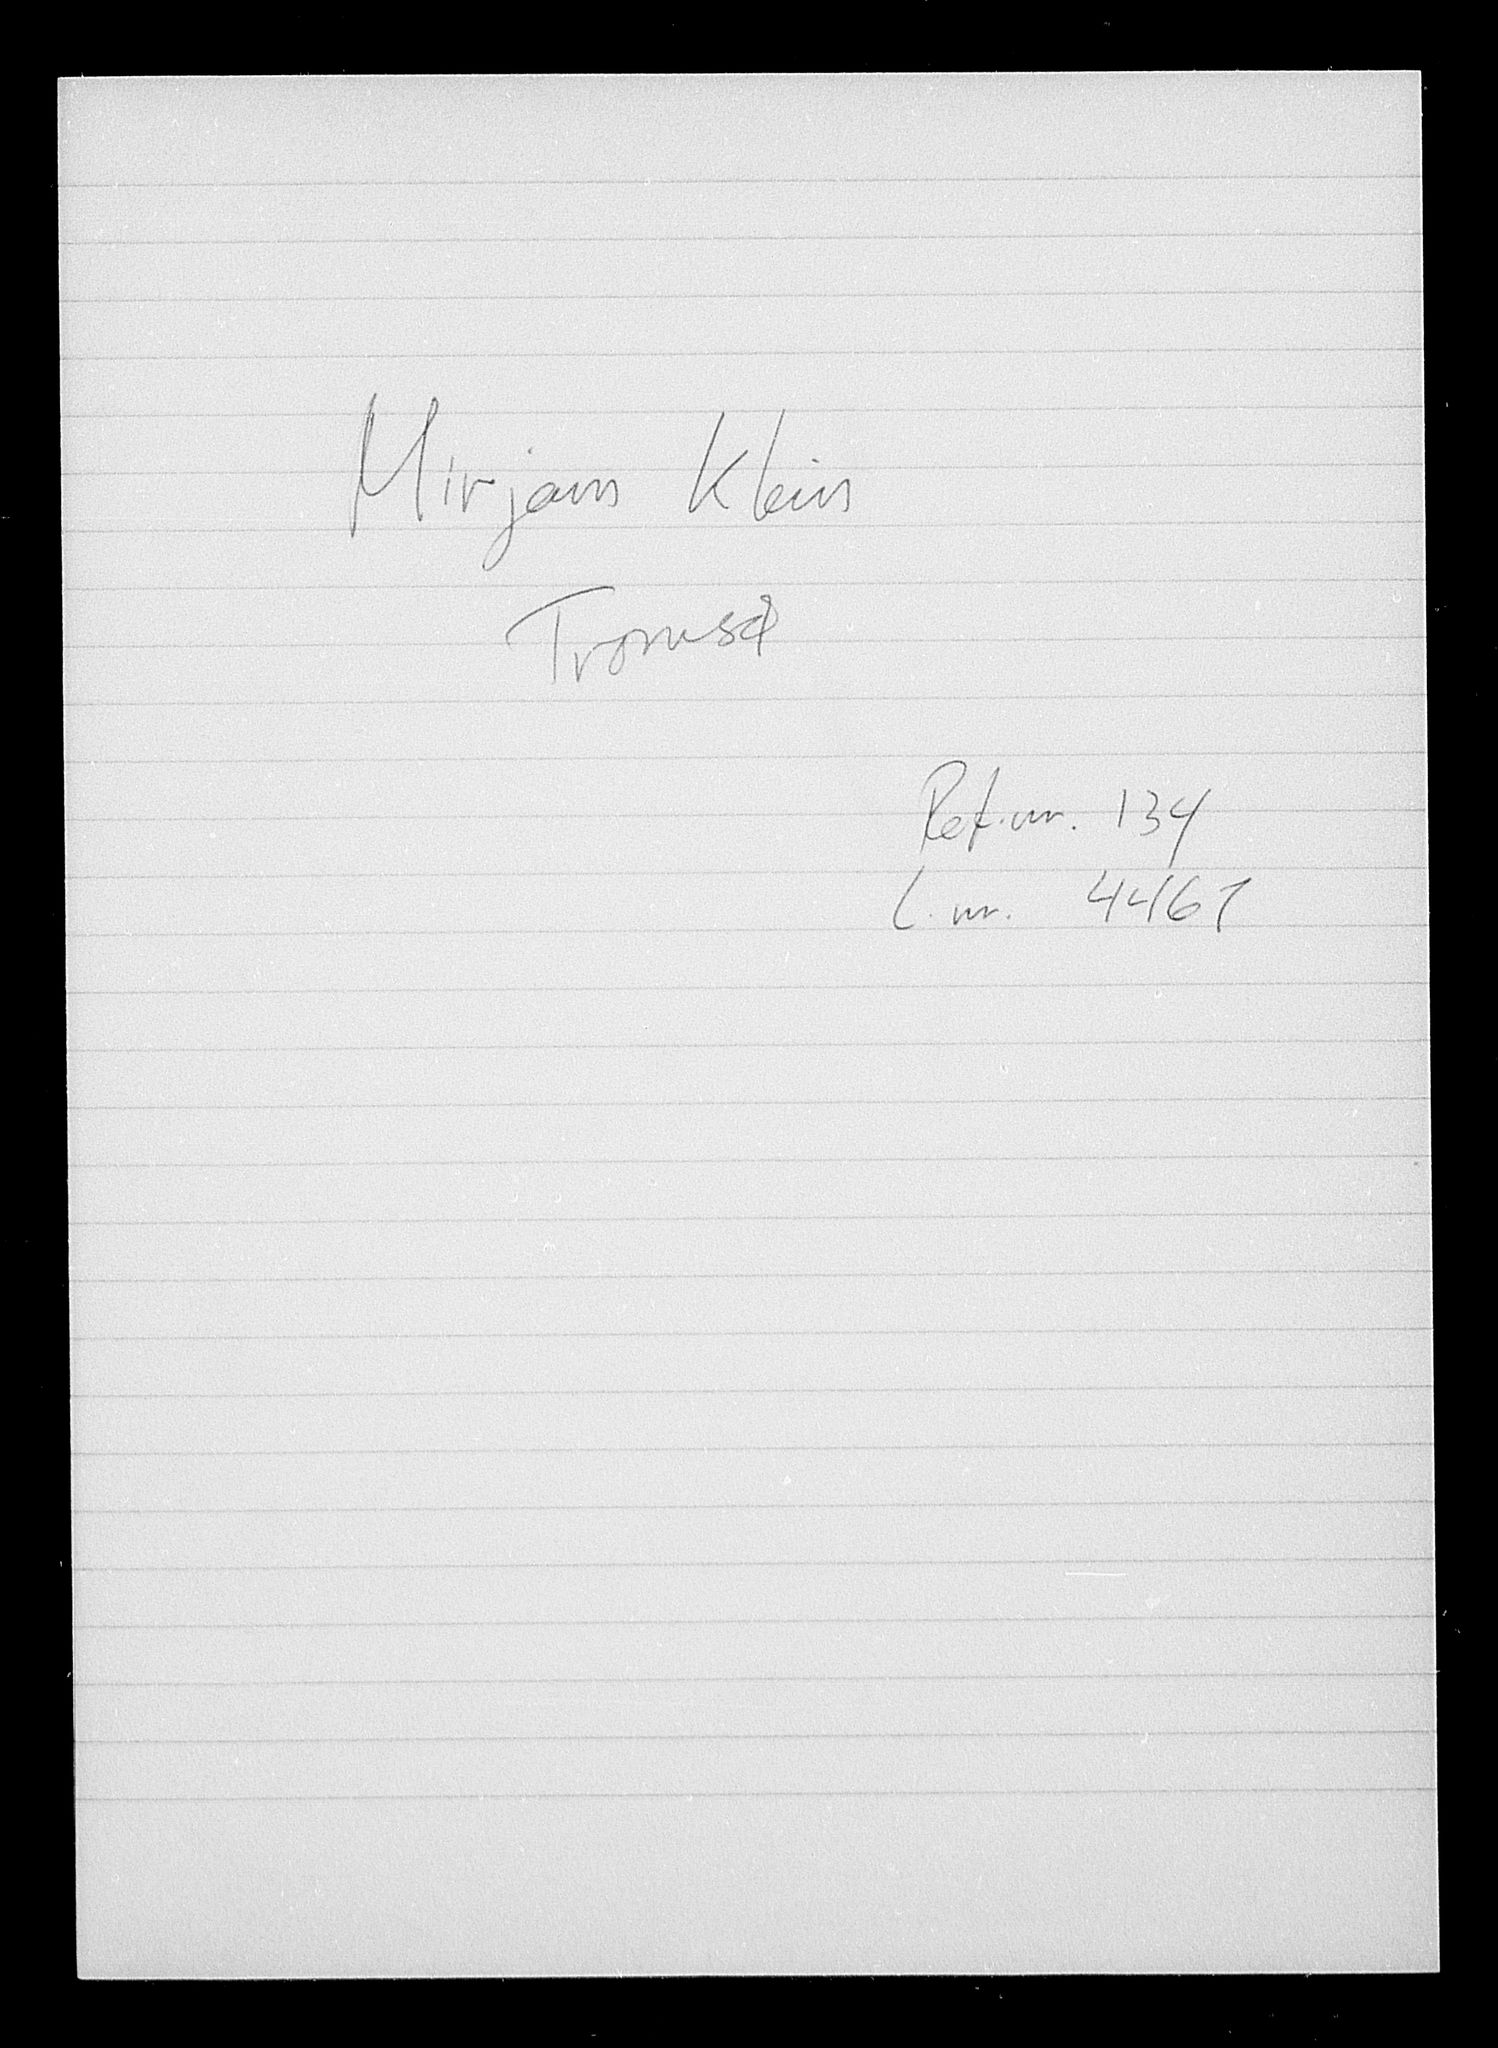 Mirjam Klein
Tromsø
Ref.nr. 134
L.nr. 4467